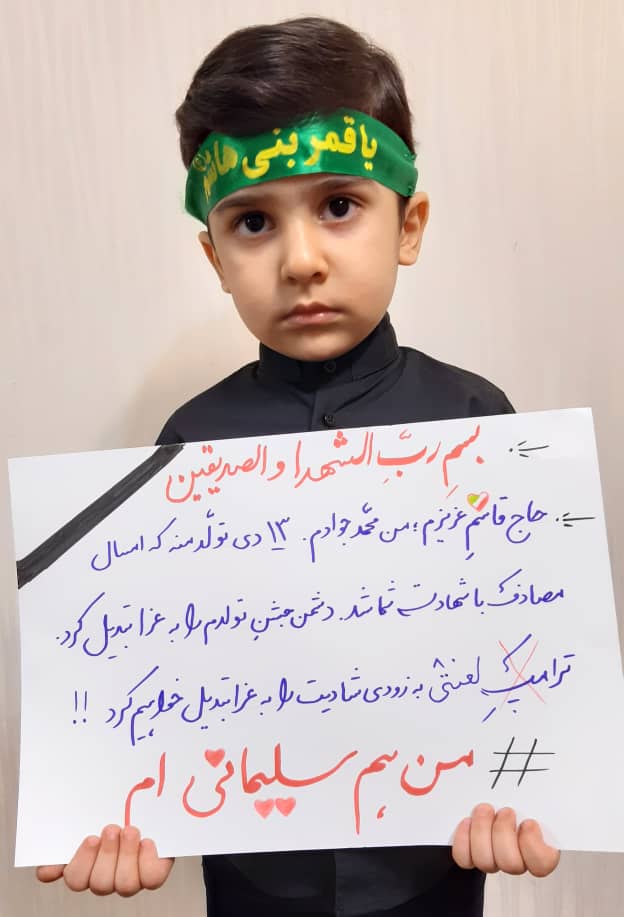 یا قمر بنی هاشم
بسمِ ربِّ الشهدا و الصدیقین
حاج قاسمِ عزیزم؛ من محمّدجوادم. ۱۳ دی تولّد منه که امسال
مصادف با شهادت شما شد. دشمن جشن تولدم را به عزا تبدیل کرد.
ترامپِ لعنتی به زودی شادیت را به عزا تبدیل خواهیم کرد !!
# من هم سلیمانی ام